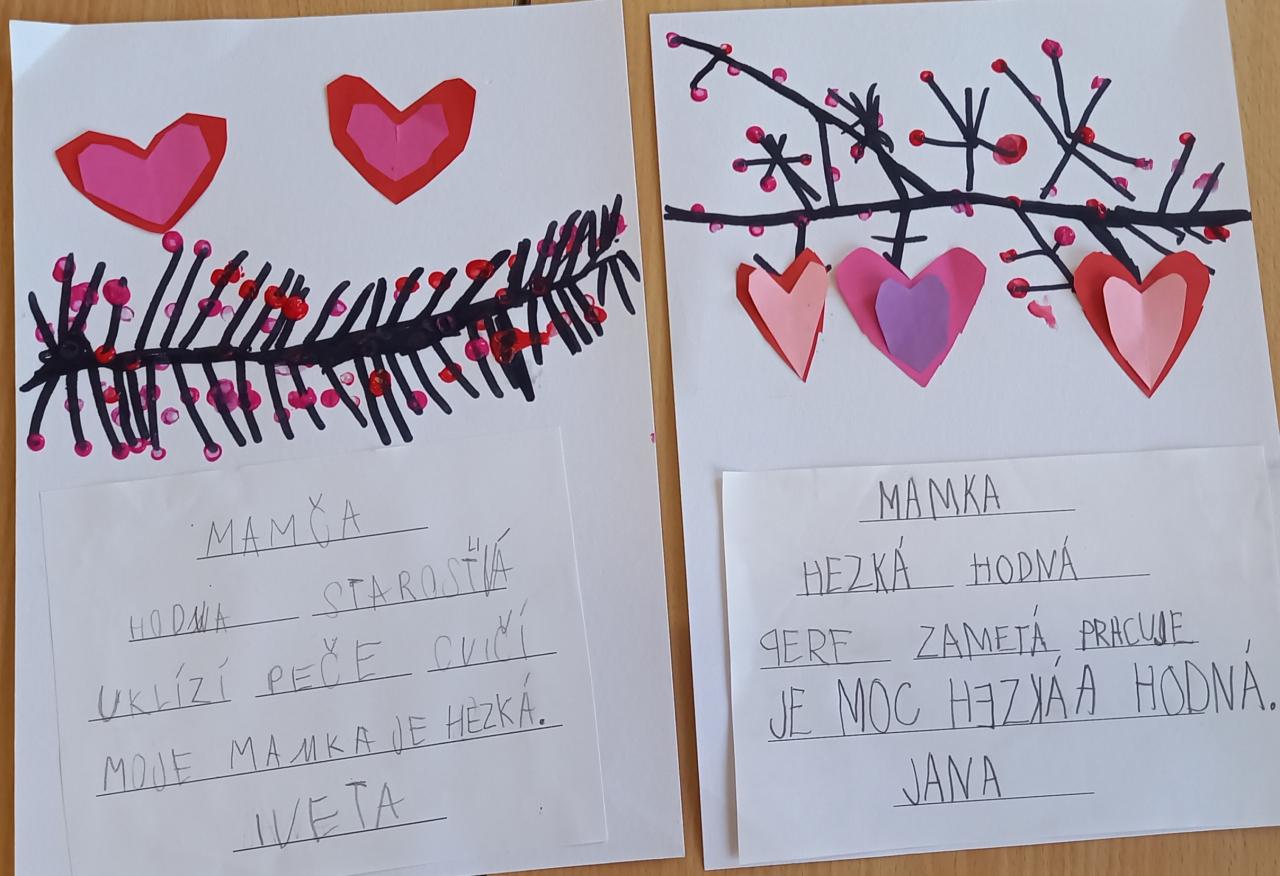 MAMČA
HODNA STAROSTLIVÁ
UKLÍZÍ PEČE CVIČÍ
MOJE MAMKA JE HEZKÁ.
IVETA
MAMKA
HEZKÁ HODNÁ
PERE ZAMETÁ PRACUJE
JE MOC HEZKÁ A HODNÁ.
JANA